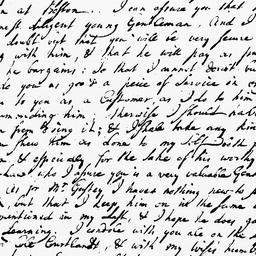 at Boston... I can assure you that
most Diligent young Gentleman, And I
doubt not that you will be very secure
with him, & that he will pay as
he bargains: So that I cannot doubt but
you as good a piece of Service in
to you as a Customer, as I do to him
him, otherwise I should not
from Doing it; & I shall take any kind
him as done to my Self with
& especially for the sake of his worthy
who I assure you is a very valuable Gent
as for Mr. I have nothing new to
but that I keep him on in the same
mentioned in my last, & I hope he does
Learning. I condole with you also on the
Col. Courtlandt, & with my wife's humble